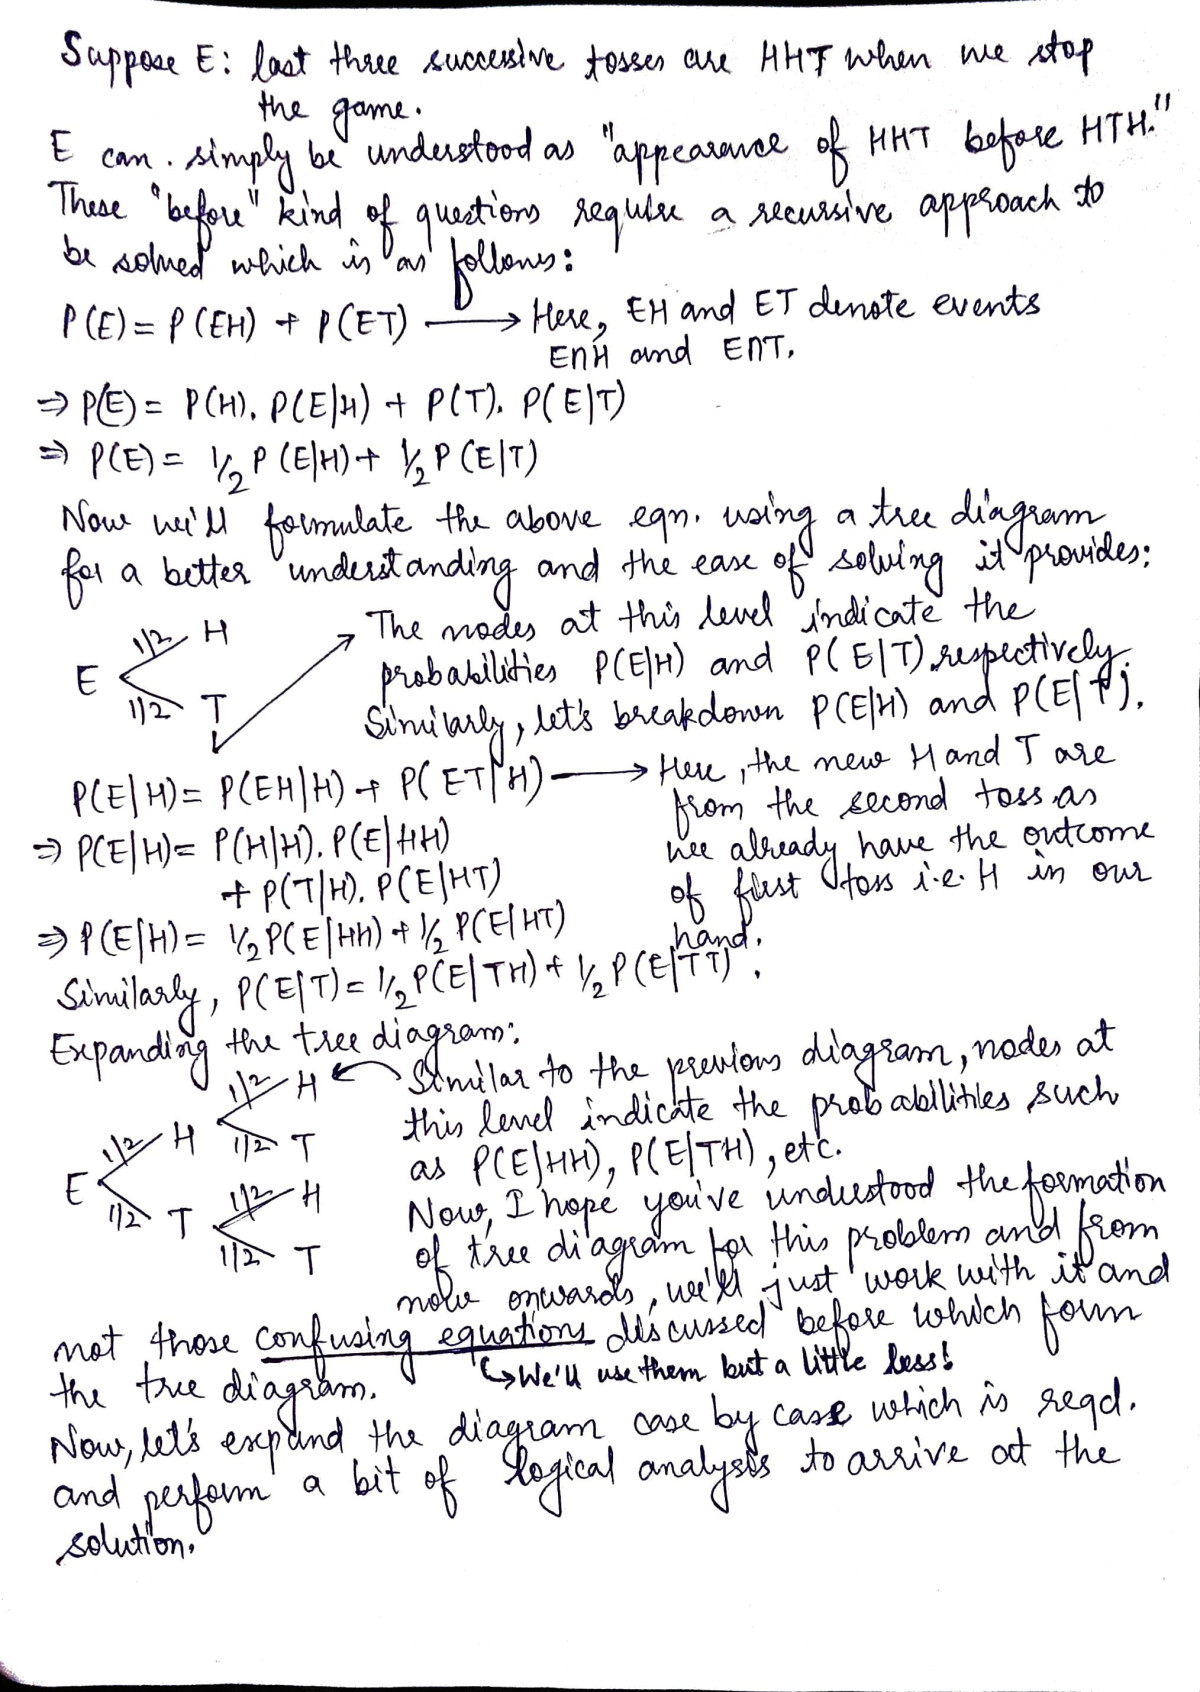 Suppose E: last three successive tosses are HHT when we stop
the game.
E can. simply be understood as "appearance of HHT before HTH."
These "before" kind of questions require a recursive approach to
be solved which is as follows:
P(E) = P(EH) + P(ET) → Here, EH and ET denote events
E∩H and E∩T.
⇒ P(E) = P(H). P(E|H) + P(T). P(E|T)
⇒ P(E) = 1/2 P(E|H) + 1/2 P(E|T)
Now we'll formulate the above eqn. using a tree diagram
for a better understanding and the ease of solving it provides:
E 1/2 H 1/2 T
The nodes at this level indicate the
probabilities P(E|H) and P(E|T) respectively.
Similarly, let's breakdown P(E|H) and P(E|T).
P(E|H) = P(EH|H) + P(ET|H) → Here, the new H and T are
from the second toss as
we already have the outcome
of first toss i.e. H in our
hand.
⇒ P(E|H) = P(H|H). P(E|HH)
+ P(T|H). P(E|HT)
⇒ P(E|H) = 1/2 P(E|HH) + 1/2 P(E|HT)
Similarly, P(E|T) = 1/2 P(E|TH) + 1/2 P(E|TT).
Expanding the tree diagram:
E 1/2 H 1/2 H 1/2 T
1/2 T 1/2 H 1/2 T
Similar to the previous diagram, nodes at
this level indicate the probabilities such
as P(E|HH), P(E|TH), etc.
Now, I hope you've understood the formation
of tree diagram for this problem and from
now onwards, we'll just work with it and
not those confusing equations discussed before which form
↳ We'll use them but a little less!
the tree diagram.
Now, let's expand the diagram case by case which is reqd.
and perform a bit of logical analysis to arrive at the
solution.